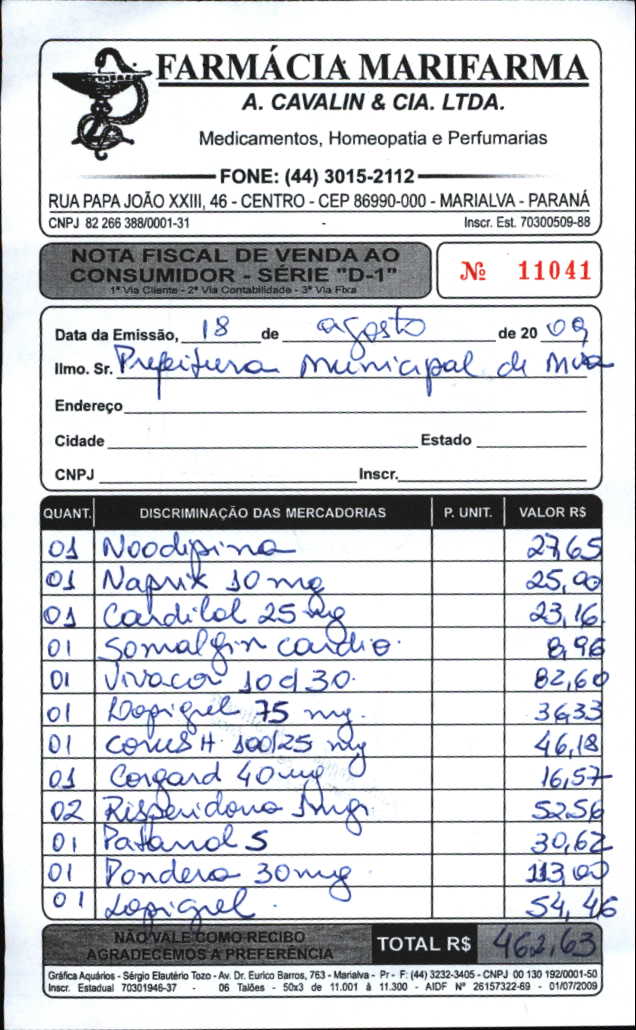 FARMÁCIA MARIFARMA
A. CAVALIN & CIA. LTDA.
Medicamentos, Homeopatia e Perfumarias
FONE: (44) 3015-2112
RUA PAPA JOÃO XXIII, 46 - CENTRO - CEP 86990-000 - MARIALVA - PARANÁ
CNPJ 82 266 388/0001-31 - Inscr. Est. 70300509-88
NOTA FISCAL DE VENDA AO
CONSUMIDOR - SÉRIE "D-1"
1ª Via Cliente - 2ª Via Contabilidade - 3ª Via Fixa
Nº 11041
Data da Emissão, 18 de agosto de 20 09
Ilmo. Sr. Prefeitura Municipal de Mva
Endereço
Cidade Estado
CNPJ Inscr.
QUANT. DISCRIMINAÇÃO DAS MERCADORIAS P. UNIT. VALOR R$
01 Noodipina 27,65
01 Naprix 10 mg 25,90
01 Cardilol 25 mg 23,16
01 Somalgin cardio. 8,96
01 Vivacor 10 c/ 30. 82,60
01 Lopigrel 75 mg. 36,33
01 Corus H 100/25 mg 46,18
01 Corgard 40 mg 16,57
02 Risperidona 1mg. 52,56
01 Patanol S 30,62
01 Pondera 30 mg 113,00
01 Lopigrel. 54,46
NÃO VALE COMO RECIBO
AGRADECEMOS A PREFERÊNCIA
TOTAL R$ 462,63
Gráfica Aquários - Sérgio Elautério Tozo - Av. Dr. Eurico Barros, 763 - Marialva - Pr - F: (44) 3232-3405 - CNPJ 00 130 192/0001-50
Inscr. Estadual 70301946-37 - 06 Talões - 50x3 de 11.001 à 11.300 - AIDF Nº 26157322-69 - 01/07/2009